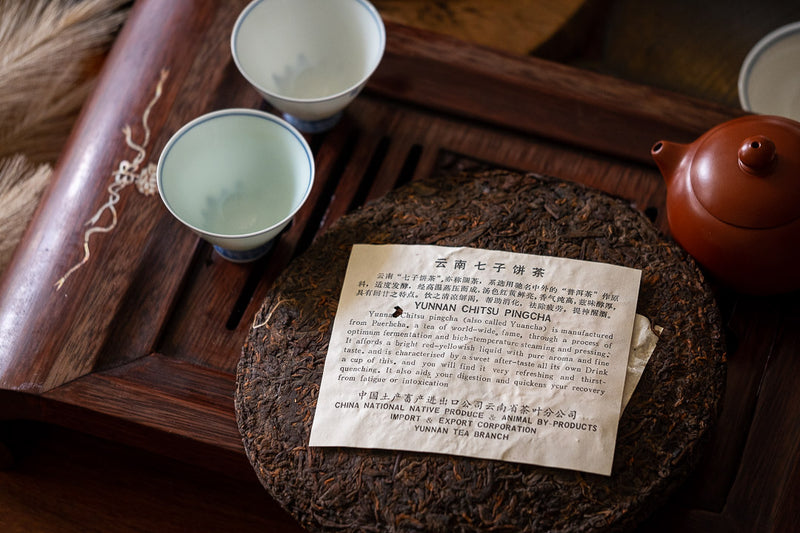 云南七子饼茶
云南“七子饼茶”，亦称圆茶，系选用驰名中外的“普洱茶”作原
料，适度发酵，经高温蒸压而成，汤色红黄鲜亮，香气纯高，滋味醇厚，
具有回甘之特点。饮之清凉解渴，帮助消化，祛除疲劳，提神醒酒。
YUNNAN CHITSU PINGCHA
Yunnan Chitsu pingcha (also called Yuancha) is manufactured
from Puerhcha, a tea of world-wide, fame, through a process of
optimum fermentation and high-temperature steaming and pressing.
It affords a bright red-yellowish liquid with pure aroma and fine
taste, and is characterised by a sweet after-taste all its own Drink
a cup of this, and you will find it very refreshing and thirst-
quenching. It also aids your digestion and quickens your recovery
from fatigue or intoxication
中国土产畜产进出口公司云南省茶叶分公司
CHINA NATIONAL NATIVE PRODUCE & ANIMAL BY-PRODUCTS
IMPORT & EXPORT CORPORATION
YUNNAN TEA BRANCH